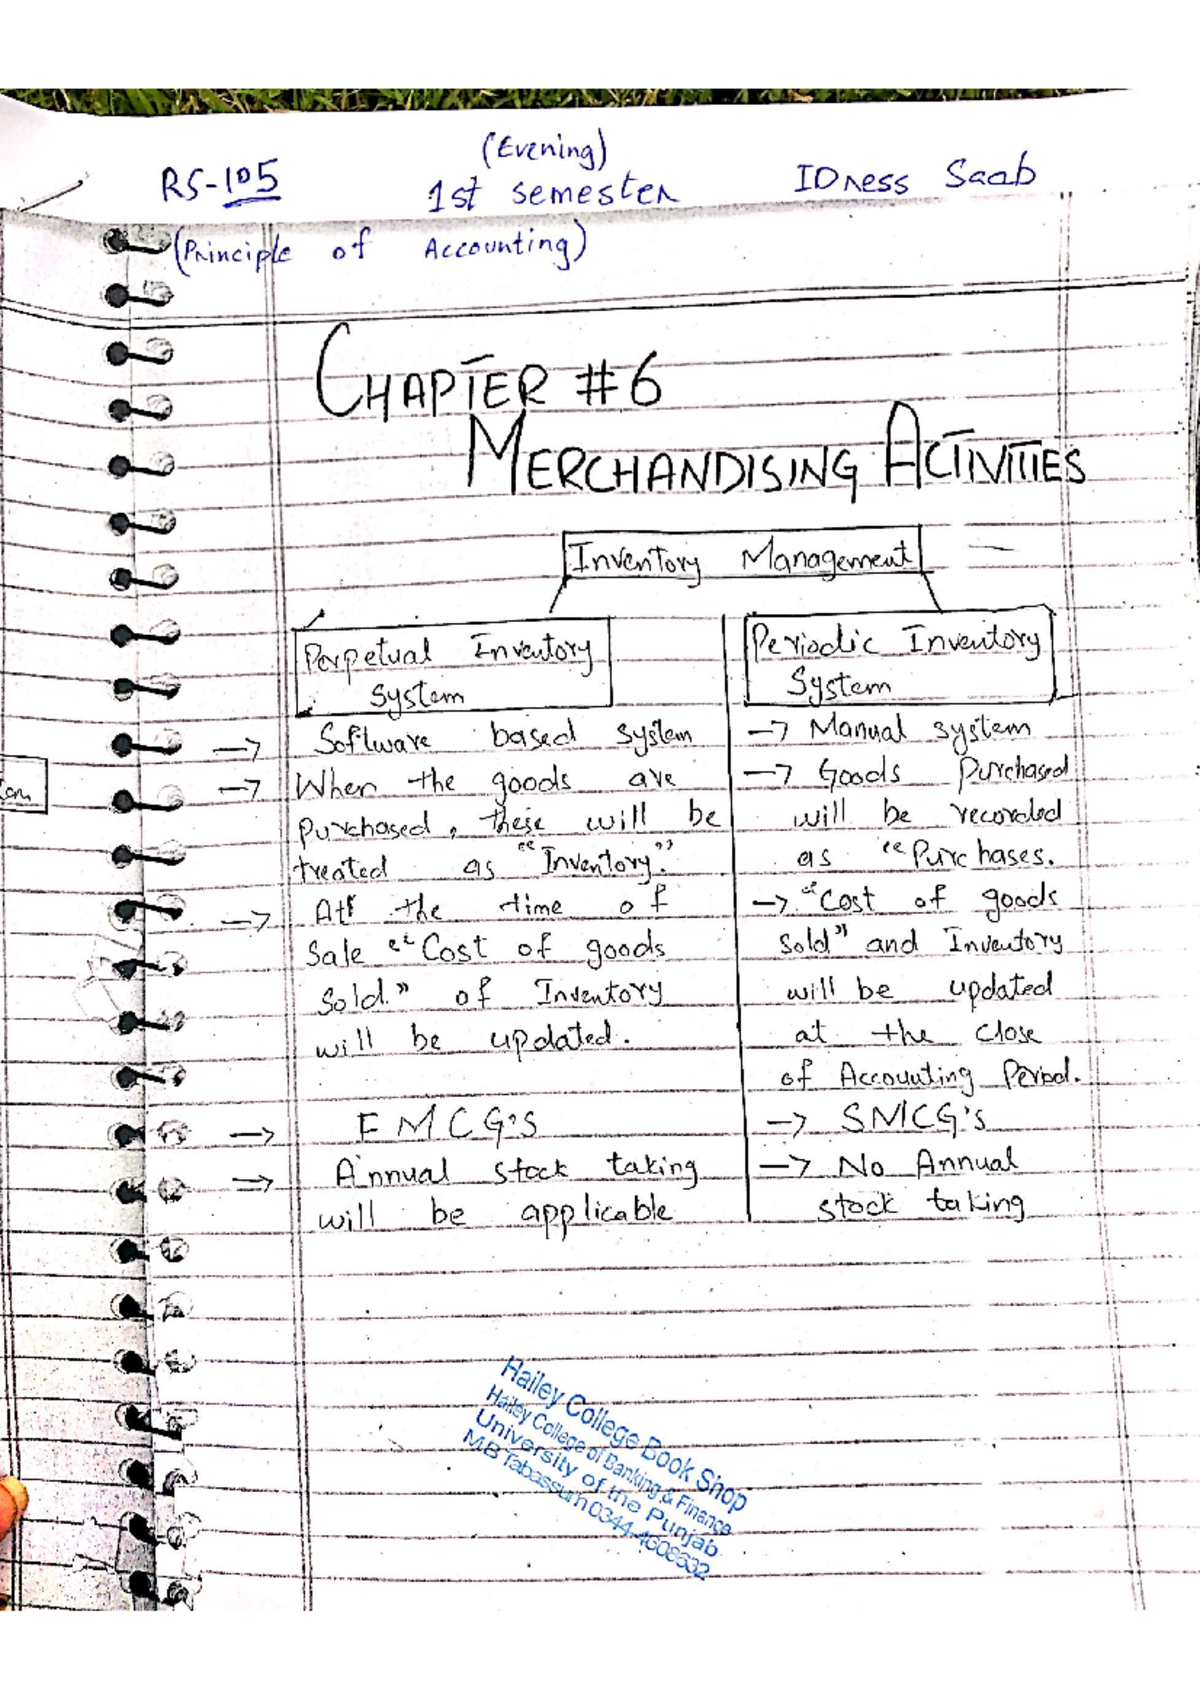 (Evening)
RS-105 1st semester IDress Saab
(Principle of Accounting)
CHAPTER #6
MERCHANDISING ACTIVITIES
Inventory Management
Perpetual Inventory
System
→ Software based system
→ When the goods are
purchased, these will be
treated as "Inventory."
→ At the time of
Sale "Cost of goods
Sold." of Inventory
will be updated.
→ FMCG'S
→ Annual stock taking
will be applicable
Periodic Inventory
System
→ Manual system
→ Goods Purchased
will be recorded
as "Purchases.
→ "Cost of goods
Sold" and Inventory
will be updated
at the close
of Accounting Period.
→ SMCG's
→ No Annual
stock taking
Hailey College Book Shop
Hailey College of Banking & Finance
University of the Punjab
M.B Tabassum 0344-4608632